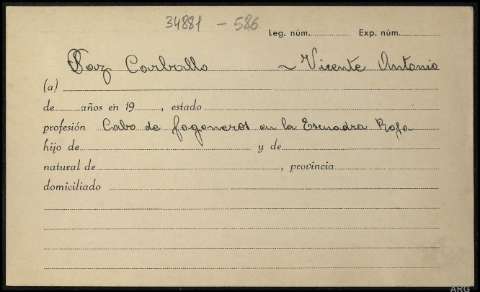 34881 - 586
Leg. núm. Exp. núm.
Paz Carballo ~ Vicente Antonio
(a)
de años en 19 , estado
profesión Cabo de fogoneros en la Escuadra Roja
hijo de y de
natural de , provincia
domiciliado
ARG